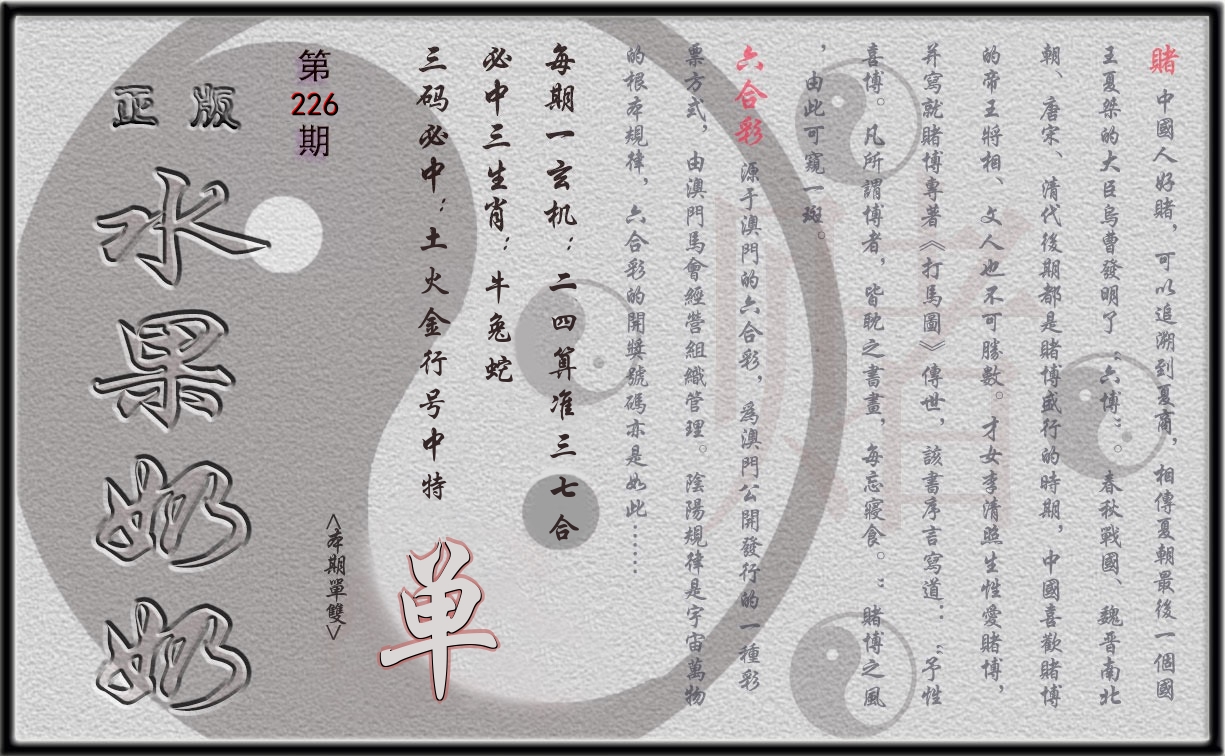 賭 中國人好賭，可以追溯到夏商，相傳夏朝最後一個國
王夏桀的大臣烏曹發明了“六博”。春秋戰國、魏晋南北
朝、唐宋、清代後期都是賭博盛行的時期，中國喜歡賭博
的帝王將相、文人也不可勝數。才女李清照生性愛賭博，
并寫就賭博專著《打馬圖》傳世，該書序言寫道：“予性
喜博。凡所謂博者，皆耽之書畫，每忘寢食。”賭博之風
，由此可窺一斑。
六合彩 源于澳門的六合彩，爲澳門公開發行的一種彩
票方式，由澳門馬會經營組織管理。陰陽規律是宇宙萬物
的根本規律，六合彩的開獎號碼亦是如此……
每期一玄机：二四算准三七合
必中三生肖：牛兔蛇
三码必中：土火金行号中特
单
<本期單雙>
第226期
正版
水果奶奶
賭